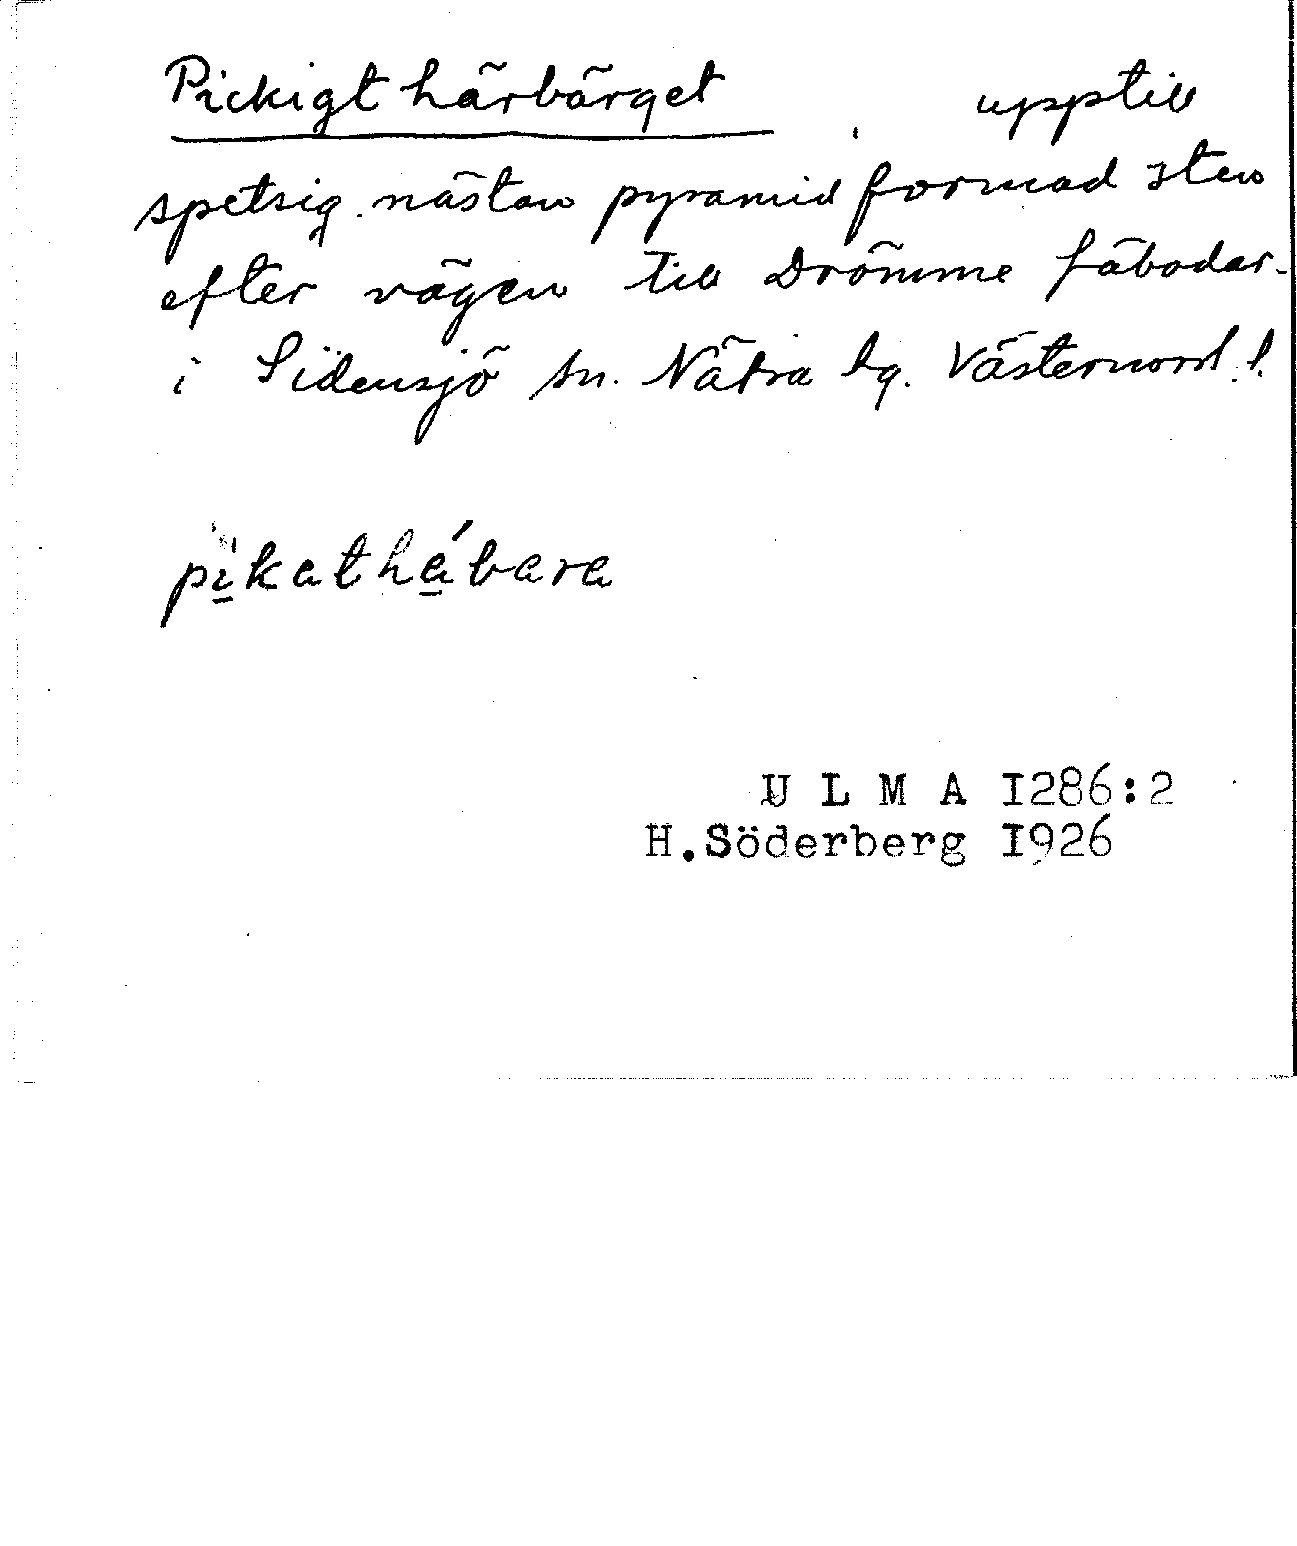 Pickigt härbärget upptill
spetsig nästan pyramid formad sten
efter vägen till Drömme fäbodar
i Sidensjö sn. Nätra hg. Västernorrl. l.
pikathábara
U L M A I286:2
H.Söderberg I926